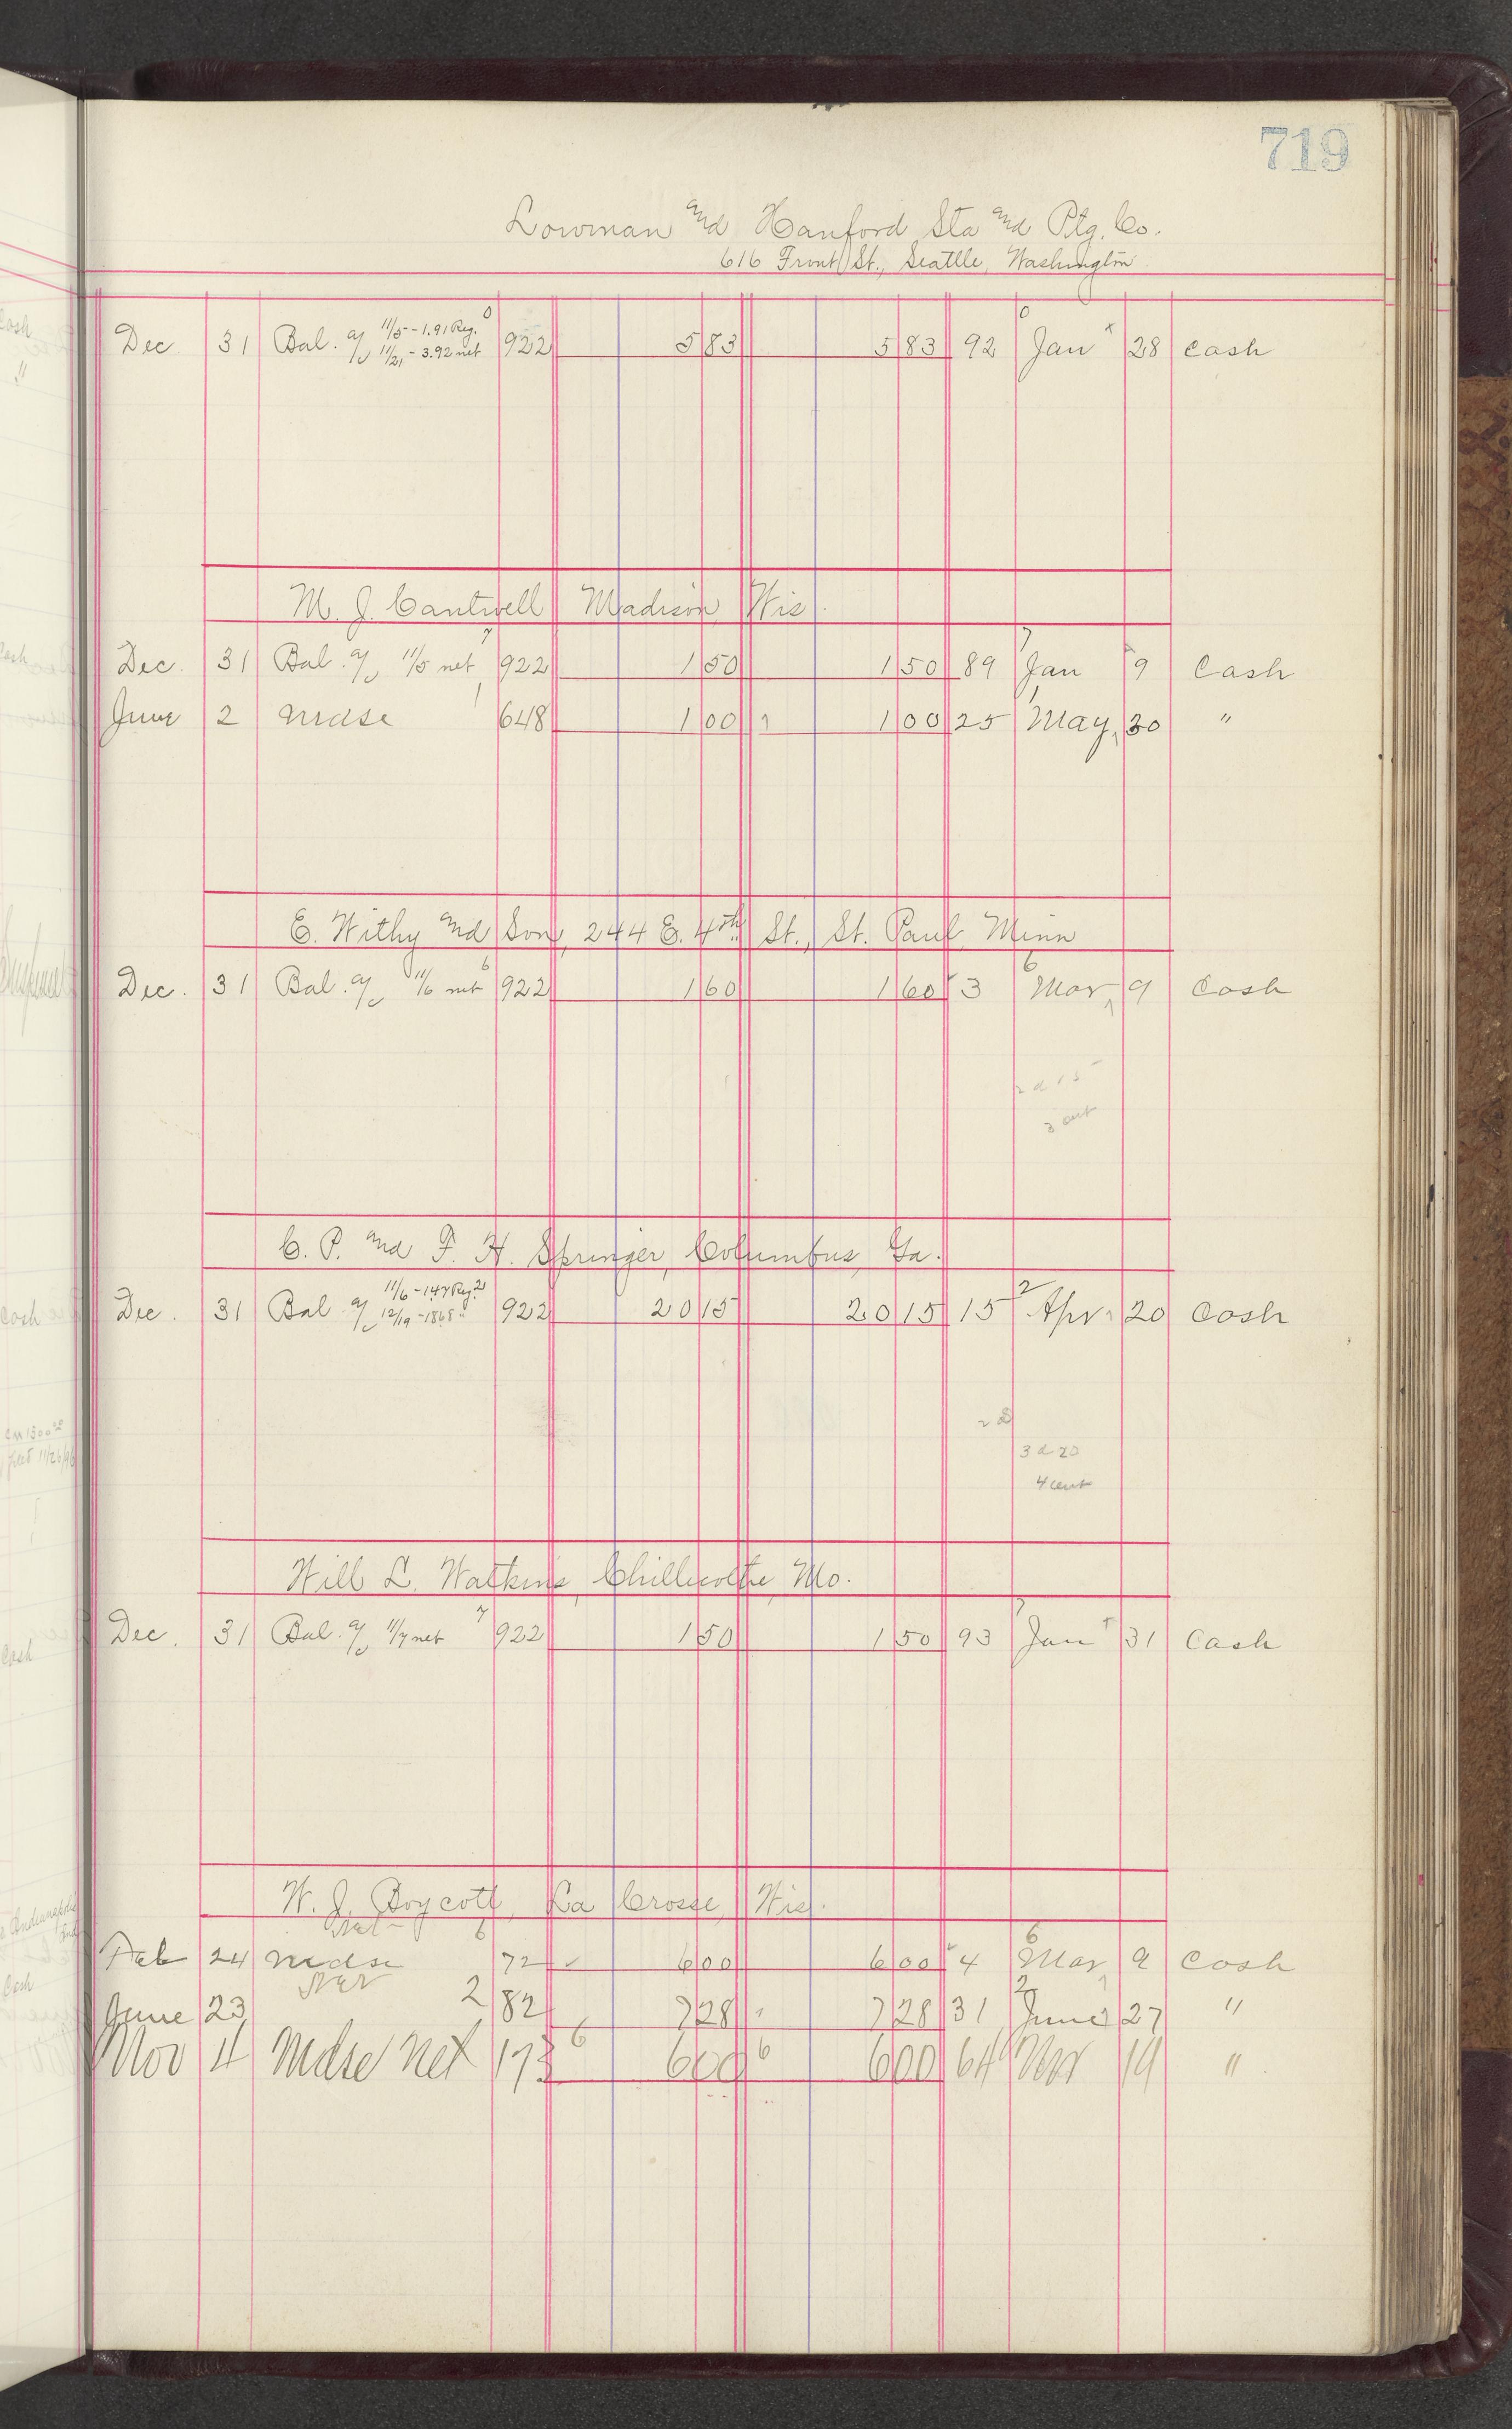 719
Lowman and Hanford Sta and Ptg. Co.
616 Front St., Seattle, Washington
Dec 31 Bal. a/c 11/5 - 1.91 Reg. 11/21 - 3.92 net 0 922 5 83 5 83 92 0 Jan 28 Cash
M. J. Cantwell Madison Wis.
Dec. 31 Bal. a/c 11/5 net 7 922 1 50 1 50 89 7 Jan 9 Cash
June 2 mdse 1 648 1 00 1 1 00 25 1 May 30 "
E. Withy and Son, 244 E. 4th St., St. Paul, Minn
Dec. 31 Bal. a/c 11/6 net 6 922 1 60 1 60 3 6 Mar 9 Cash
2 d 15
3 cent
C. P. and F. H. Springer, Columbus, Ga.
Dec. 31 Bal a/c 11/6 - 147 Reg. 12/19 - 1868 " 2 922 20 15 20 15 15 2 Apr 20 Cash
2 d
3 d 20
4 cent
Will L. Watkins, Chillicothe, Mo.
Dec. 31 Bal. a/c 11/7 net 7 922 1 50 1 50 93 7 Jan 31 Cash
W. J. Boycott, La Crosse, Wis.
Net
Feb 24 mdse 6 72 6 00 6 00 4 6 Mar 9 Cash
Net
June 23 2 82 7 28 7 28 31 2 June 27 "
Nov 4 Mdse Net 173 6 6 00 6 6 00 64 Nov 19 "